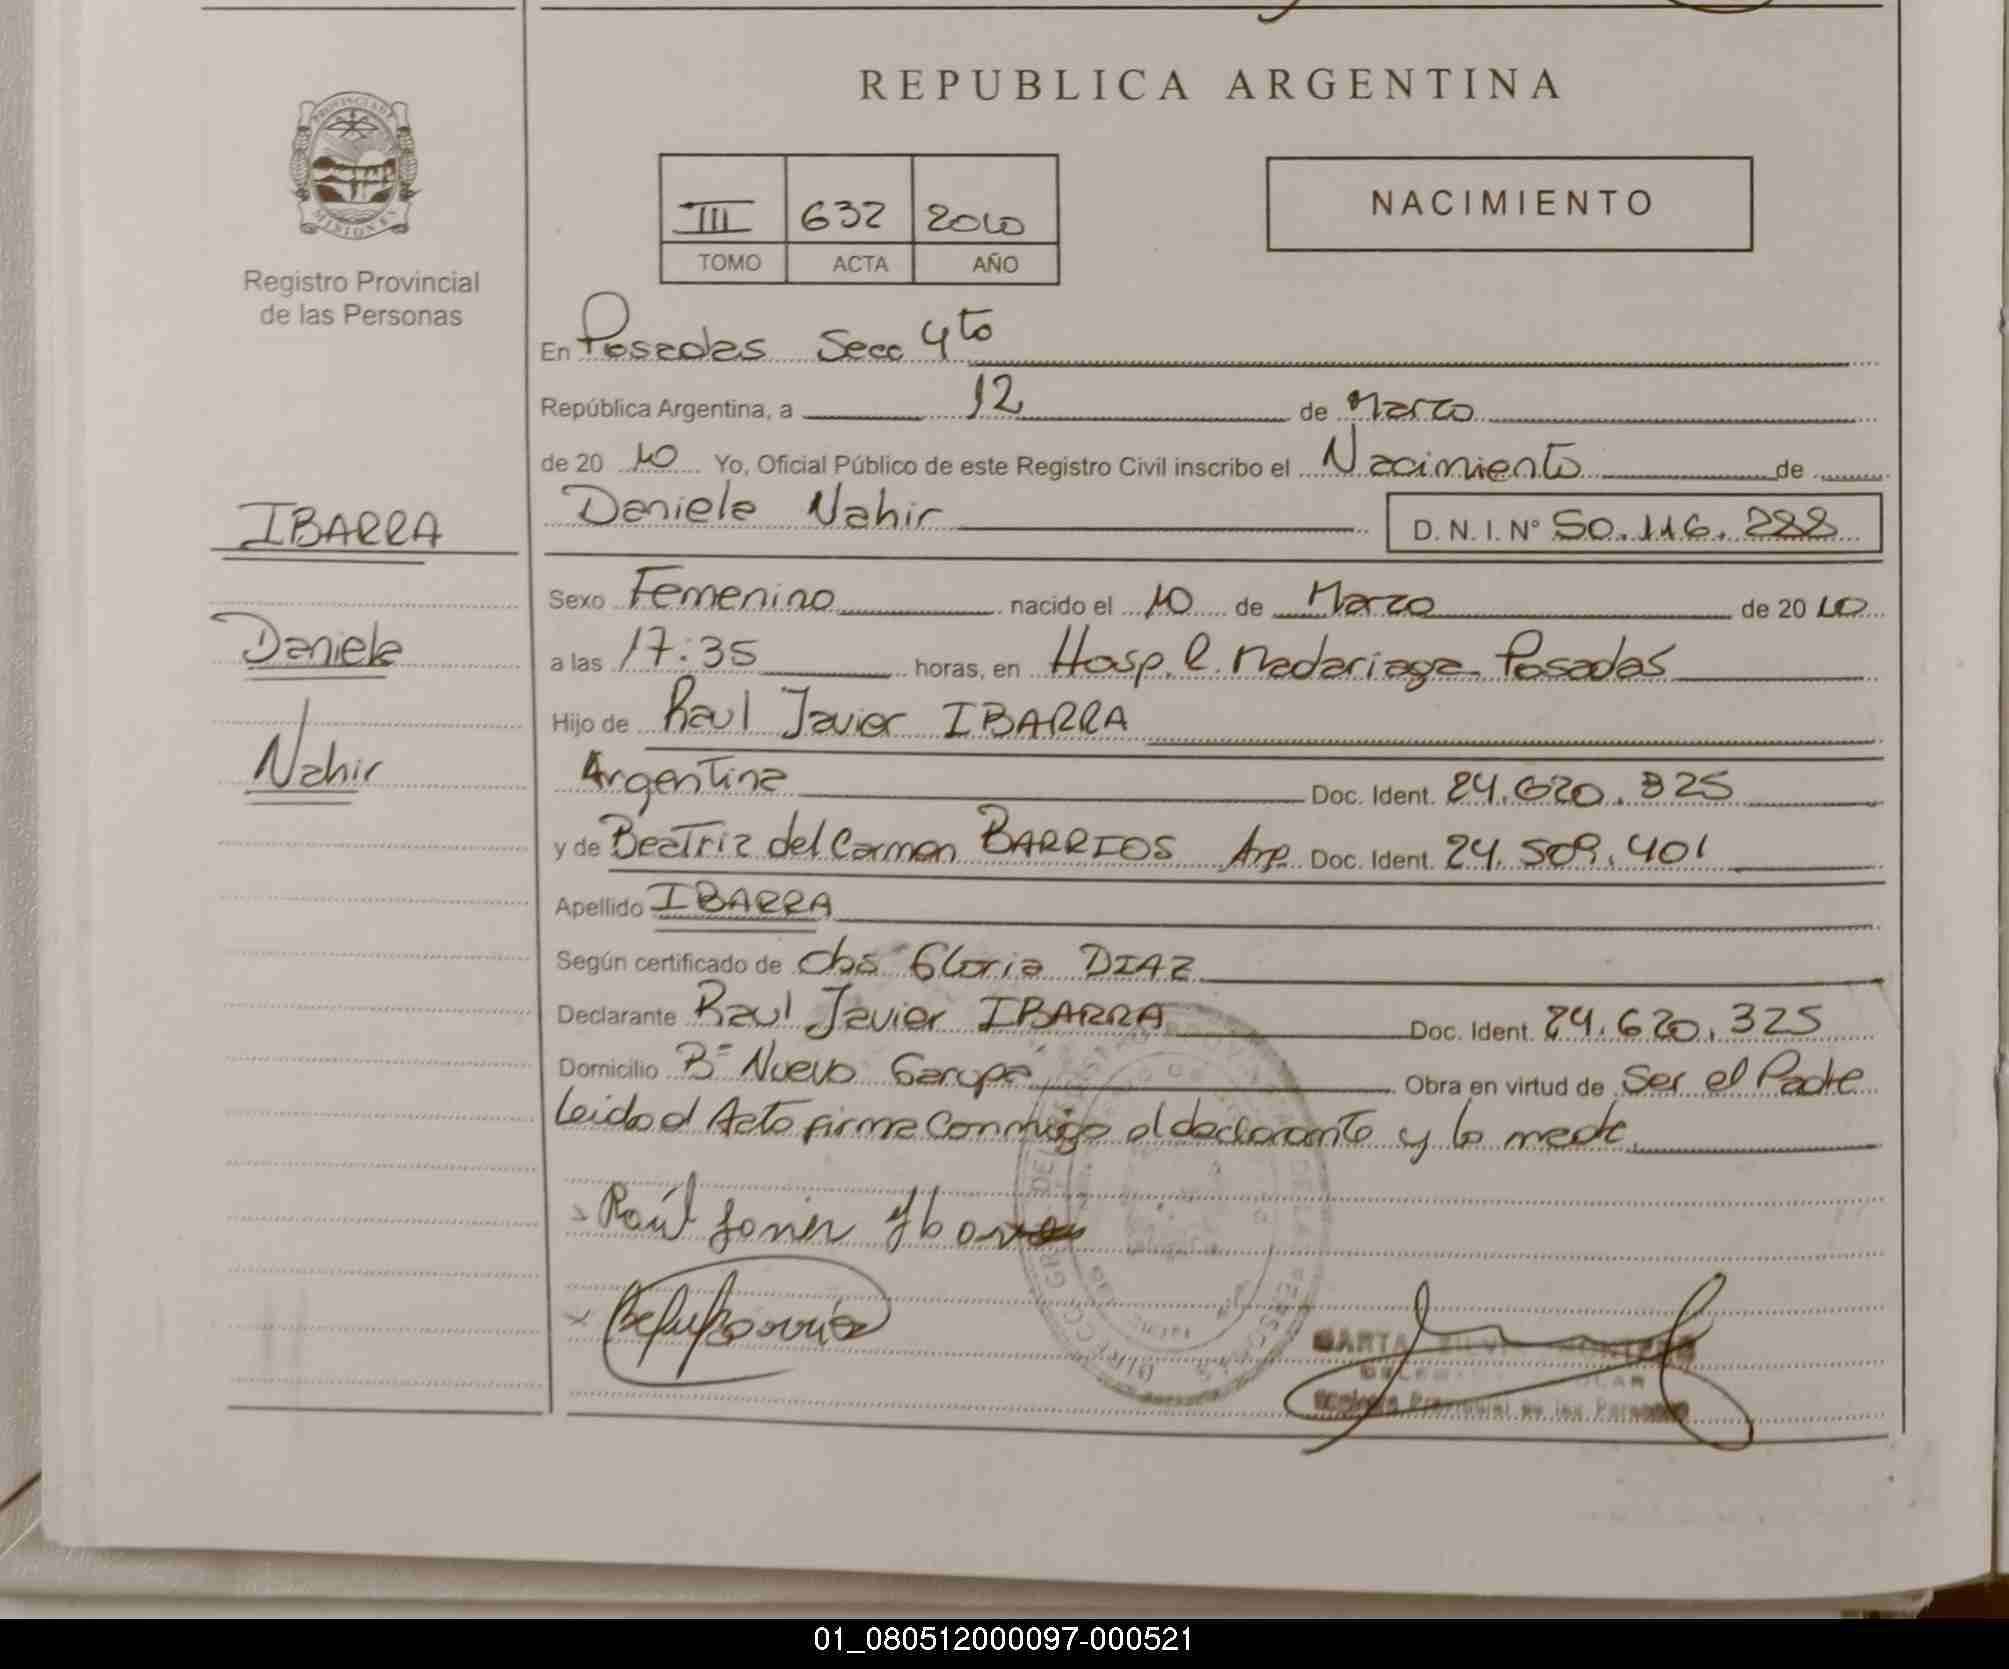 REPUBLICA ARGENTINA
PROVINCIA DE
MISIONES
Registro Provincial
de las Personas
III 632 2010
TOMO ACTA AÑO
NACIMIENTO
En Posadas Secc 4to
República Argentina, a 12 de Marzo
de 20 10 Yo, Oficial Público de este Registro Civil inscribo el Nacimiento de
IBARRA
Daniela Nahir D. N. I. Nº 50.116.288
Sexo Femenino nacido el 10 de Marzo de 20 10
Daniela
a las 17:35 horas, en Hosp. R. Madariaga Posadas
Hijo de Raul Javier IBARRA
Nahir
Argentina Doc. Ident. 24.620.325
y de Beatriz del Carmen BARRIOS Arg. Doc. Ident. 24.509.401
Apellido IBARRA
Según certificado de Obs Gloria DIAZ
Declarante Raul Javier IBARRA Doc. Ident. 24.620.325
Domicilio Bº Nuevo Garupá Obra en virtud de Ser el Padre
Leida el Acta firma conmigo el declarante y la madre
Raúl Javier Ybarra
MARTA SILVIA
Registro Provincial de las Personas
01_080512000097-000521